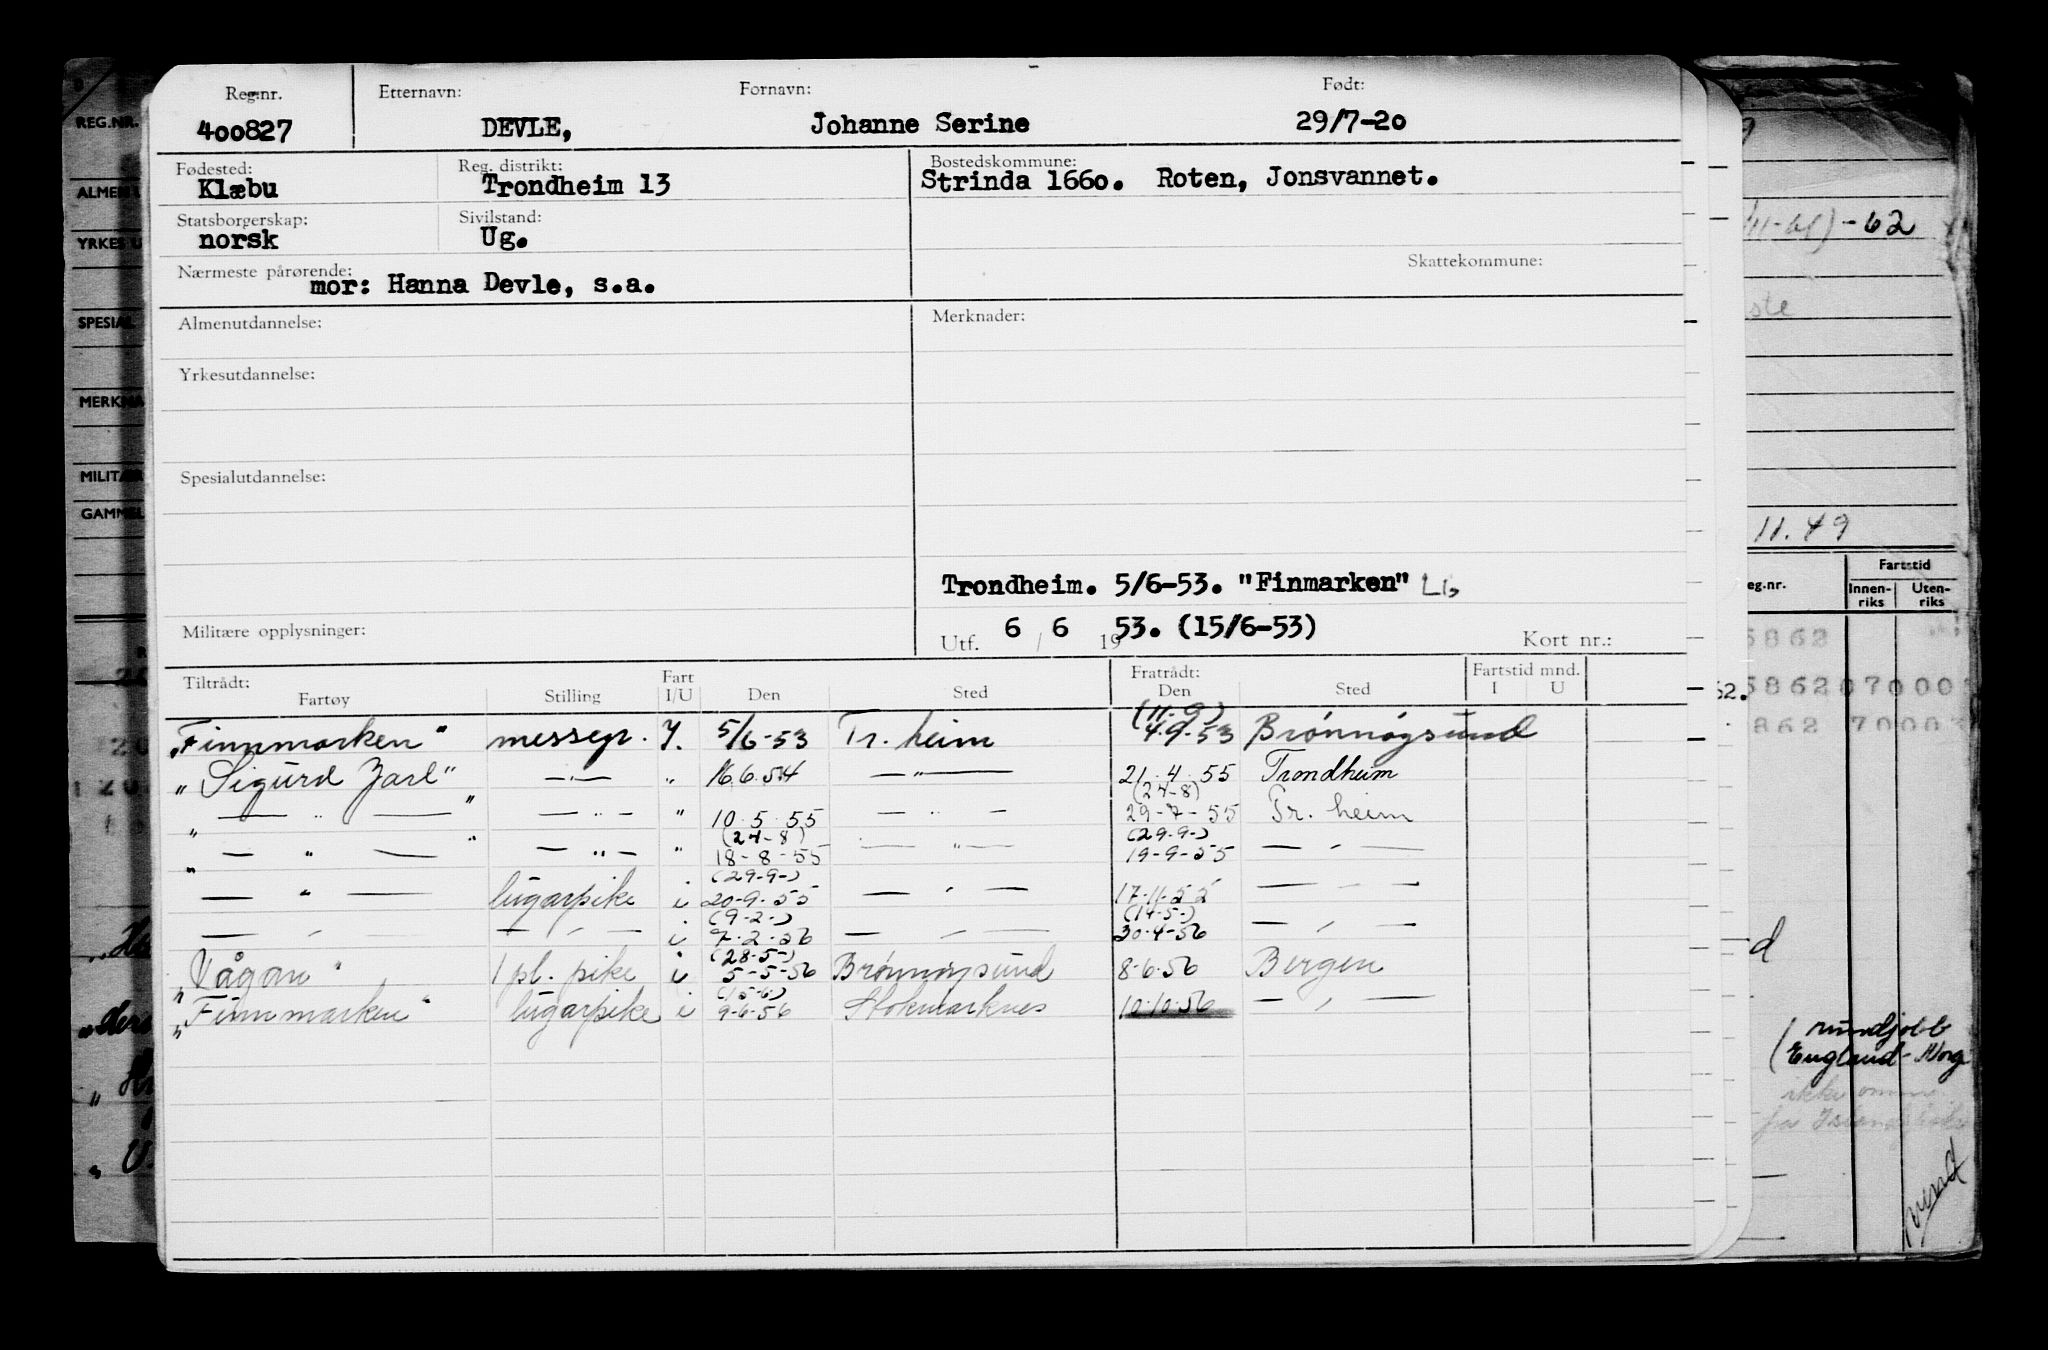 Reg.nr. Etternavn: Fornavn: Født:
400827 DEVLE, Johanne Serine 29/7-20
Fødested: Reg. distrikt: Bostedskommune:
Klæbu Trondheim 13 Strinda 1660. Roten, Jonsvannet.
Statsborgerskap: Sivilstand:
norsk Ug.
Nærmeste pårørende: Skattekommune:
mor: Hanna Devle, s.a.
Almenutdannelse: Merknader:
Yrkesutdannelse:
Spesialutdannelse:
Trondheim. 5/6-53. "Finmarken"
Militære opplysninger: Utf. 6 / 6 19 53. (15/6-53) Kort nr.:
Tiltrådt: Fart Fratrådt: Fartstid mnd.
Fartøy Stilling I/U Den Sted Den Sted I U
(11-9)
"Finnmarken" messegr. I. 5/6-53 Tr. heim 4-9-53 Brønnøysund
"Sigurd Jarl" —"— " 16.6.54 —"— 21.4.55 Trondheim
(24-8)
" — " — " — " — " 10.5.55 — " — 29-7-55 Tr. heim
(24-8) (29-9-)
" — " — " — " — " 18-8-55 — " — 19-9-55 — " —
(29-9-)
— " — lugarpike i 20-9-55 — " — 17-11-55 — " —
(9-2-) (14-5-)
— " — — " — i 7-2-56 — " — 30-4-56 — " —
(28-5-)
"Vågan" 1 pl. pike i 5-5-56 Brønnøysund 8-6-56 Bergen
(15-6)
"Finnmarken" lugarpike i 9-6-56 Stokmarknes 10.10.56 — " —
REG.NR.
YRKES U
SPESIAL
MERKNA
MILITÆR
GAMMEL
-62
11.49
eg.nr. Fartstid
Innen-riks Uten-riks
5862
5862 07000
862 7000
62.
rundjobb
England-Norge